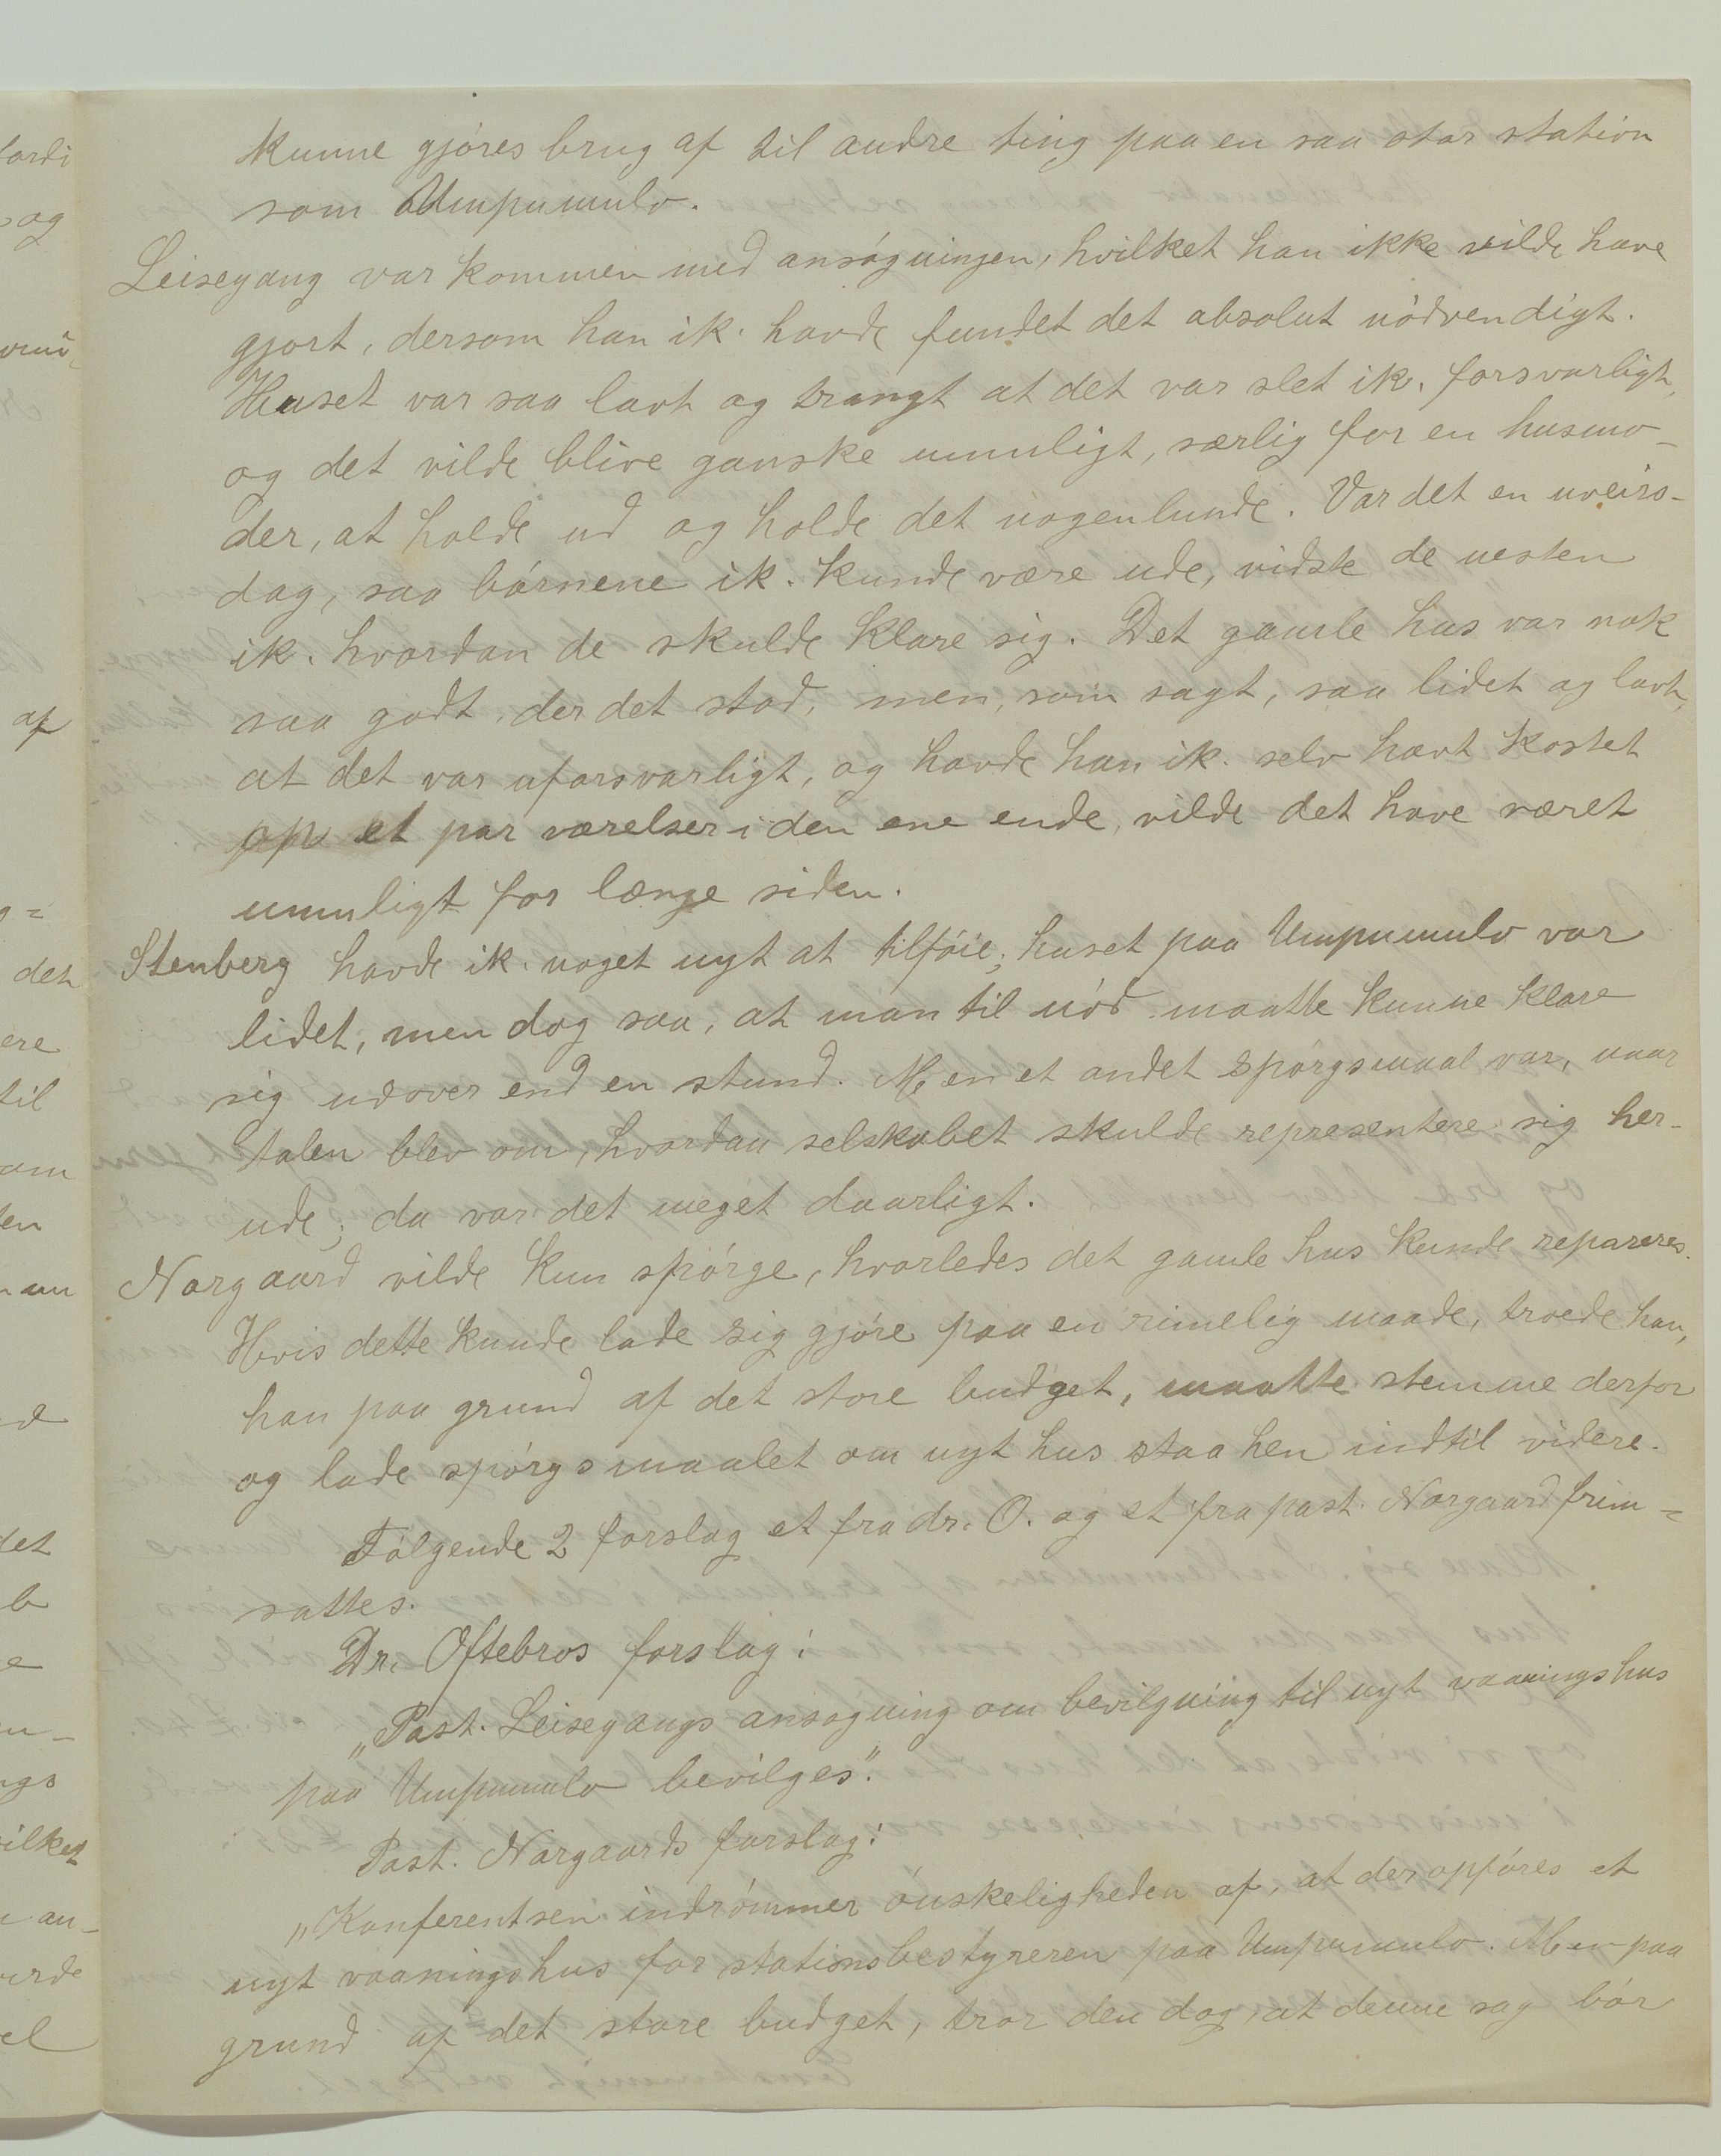 kunne gjøres brug af til andre ting paa en saa stor station
som Umpumulo.
Leisegang var kommen med ansøgningen, hvilket han ikke vilde have
gjort, dersom han ik. havde fundet det absolut nødvendigt.
Huset var saa lavt og trangt at det var slet ik. forsvarligt,
og det vilde blive ganske umuligt, særlig for en husmo-
der, at holde ud og holde det nogenlunde. Var det en uveirs-
dag, saa børnene ik. kunde være ude, vidste de nesten
ik. hvordan de skulde klare sig. Det gamle hus var nok
saa godt, der det stod, men, som sagt, saa lidet og lavt,
at det var uforsvarligt, og havde han ik. selv havt kostet
op et par værelser i den ene ende, vilde det have været
umuligt for længe siden.
Stenberg havde ik. noget nyt at tilføie; huset paa Umpumulo var
lidet, men dog saa, at man til nød maatte kunne klare
sig udover end en stund. Men et andet spørgsmaal var, naar
talen blev om, hvordan selskabet skulde representere sig her-
ude; da var det meget daarligt.
Norgaard vilde kun spørge, hvorledes det gamle hus kunde repareres.
Hvis dette kunde lade sig gjøre paa en rimelig maade, troede han,
han paa grund af det store budget, maatte stemme derfor
og lade spørgsmaalet om nyt hus staa hen indtil videre.
Følgende 2 forslag et fra dr. O. og et fra past. Norgaard frem=
sattes.
Dr. Oftebros forslag:
„Past. Leisegangs ansøgning om bevilgning til nyt vaaningshus
paa Umpumulo bevilges".
Past. Norgaards forslag:
„Konferentsen indrømmer ønskeligheden af, at der opføres et
nyt vaaningshus for stationsbestyreren paa Umpumulo. Men paa
grund af det store budget, tror den dog, at denne sag bør